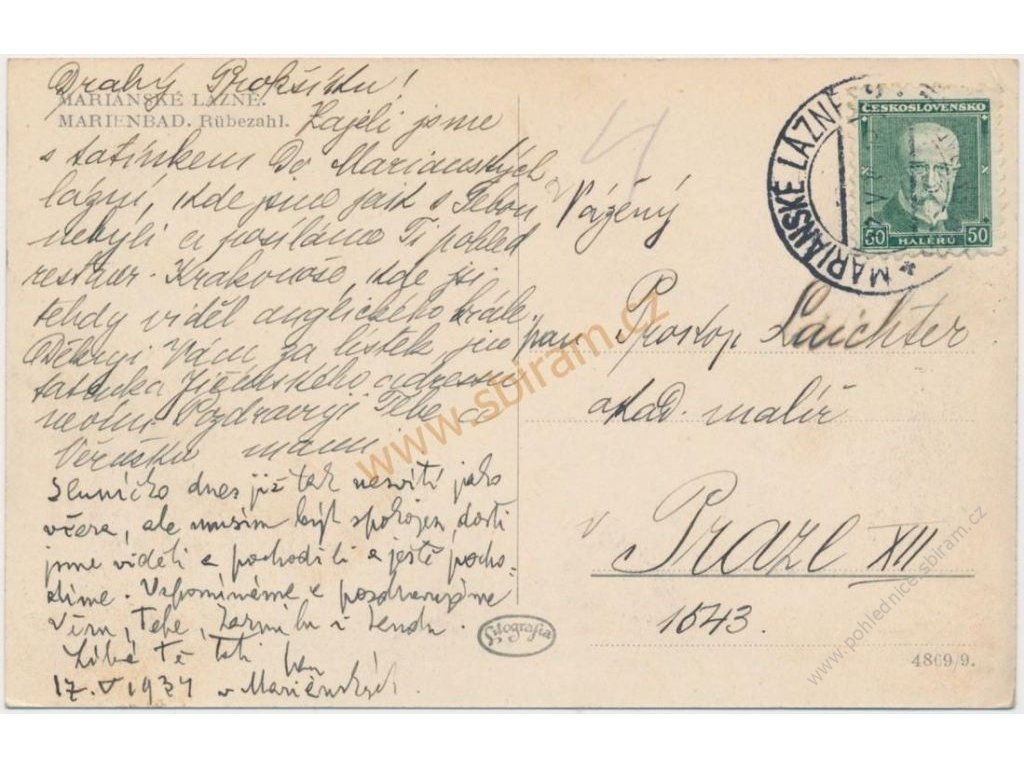 Drahý Prokšíku!
MARIÁNSKÉ LÁZNĚ.
MARIENBAD. Rübezahl.
Zajeli jsme
s tatínkem do Mariánských
lázní, kde jsme jak s Tebou
nebyli a posíláme Ti pohled
restaur. Krakonoše, kde jsi
tehdy viděl anglického krále.
Děkuji Vám za lístek, jen
tatínka Jičínského adresu
nevím. Pozdravuji Tebe a
Věrušku mami.
Sluníčko dnes již tak nesvítí jako
včera, ale musím být spokojen, dosti
jsme viděli a pochodili a ještě pocho-
díme. Vzpomínáme a pozdravujeme
Věru, Tebe, Jarmilu i Jendu.
Líbá Tě táta
17. V 1934 v Mariánských.
Vážený
pan Prokop Laichter
akad. malíř
v Praze XII
1543.
ČESKOSLOVENSKO
50 HALÉŘŮ 50
MARIÁNSKÉ LÁZNĚ
Litografia
4869/9.
www.sbiram.cz
www.pohlednice-sbiram.cz